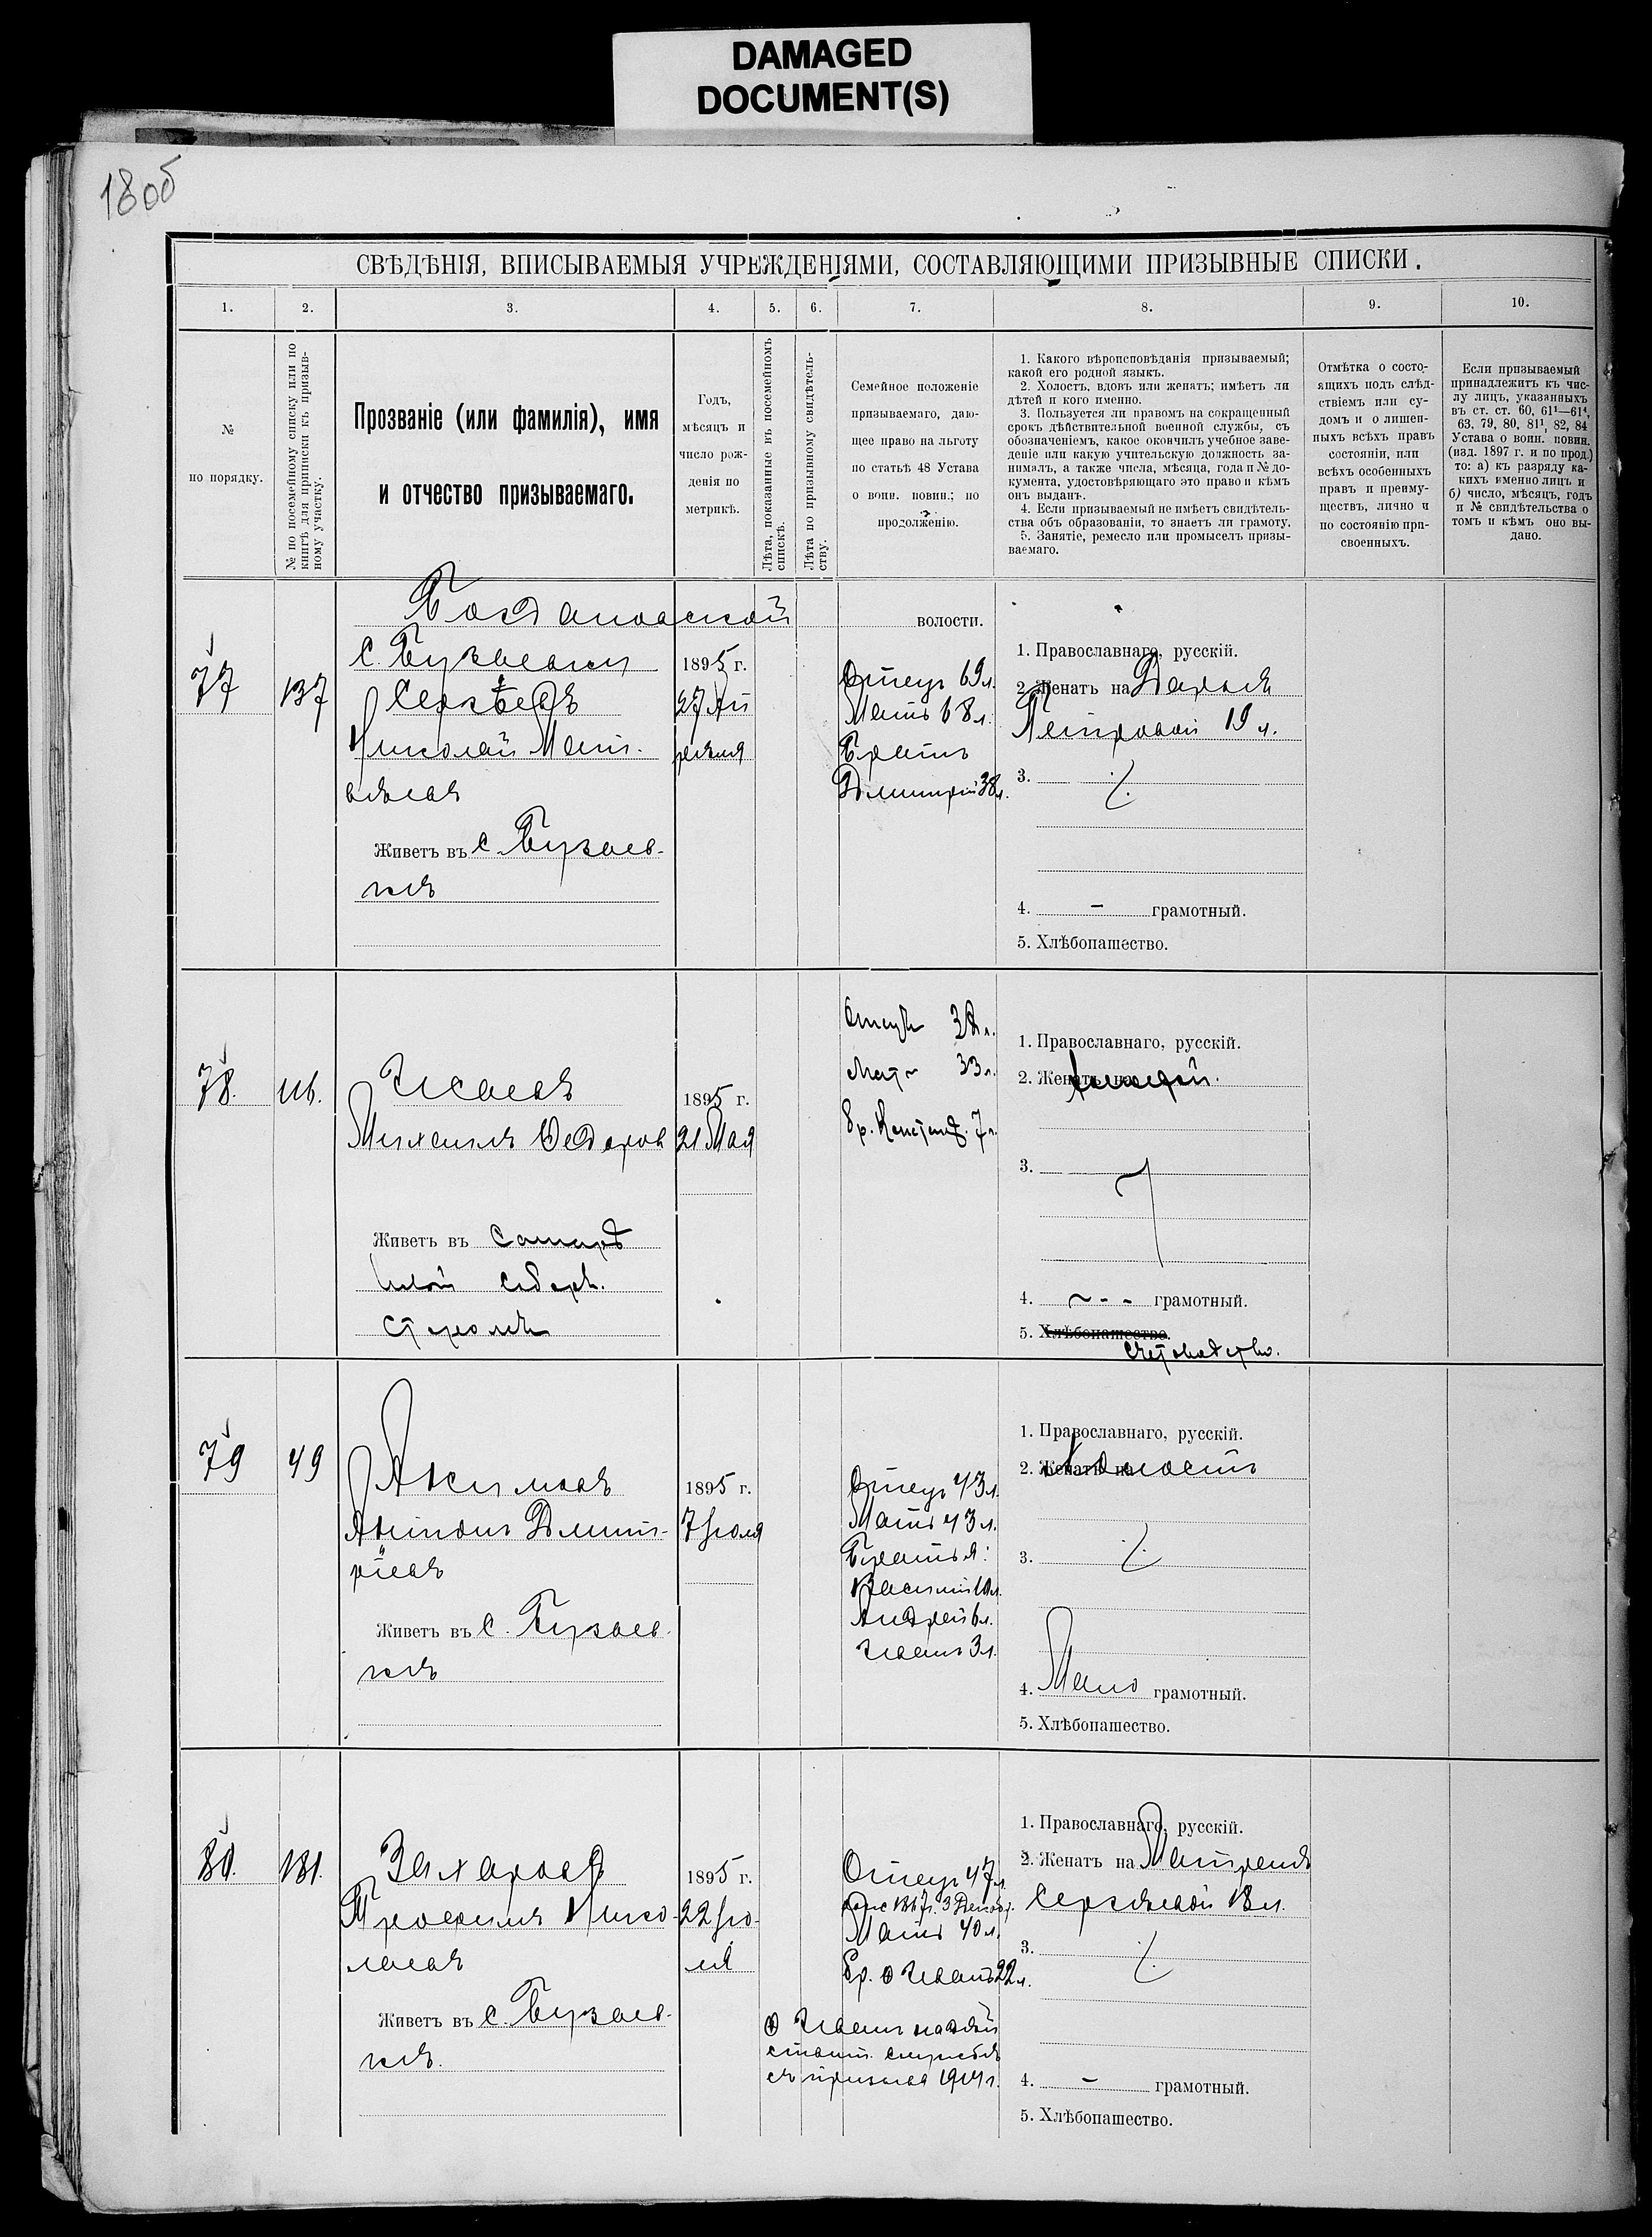 DAMAGED
DOCUMENT(S)
18об
СВѢДѢНІЯ, ВПИСЫВАЕМЫЯ УЧРЕЖДЕНІЯМИ, СОСТАВЛЯЮЩИМИ ПРИЗЫВНЫЕ СПИСКИ.
1. 2. 3. 4. 5. 6. 7. 8. 9. 10.
№
по порядку.
№ по посемейному списку или по
книгѣ для приписки къ призыв-
ному участку.
Прозваніе (или фамилія), имя
и отчество призываемаго.
Годъ,
мѣсяцъ и
число рож-
денія по
метрикѣ.
Лѣта, показанные въ посемейномъ
спискѣ.
Лѣта по призывному свидѣтель-
ству.
Семейное положеніе
призываемаго, даю-
щее право на льготу
по статьѣ 48 Устава
о воин. повин.; по
продолженію.
1. Какого вѣроисповѣданія призываемый;
какой его родной языкъ.
2. Холостъ, вдовъ или женатъ; имѣетъ ли
дѣтей и кого именно.
3. Пользуется ли правомъ на сокращенный
срокъ дѣйствительной военной службы, съ
обозначеніемъ, какое окончилъ учебное заве-
деніе или какую учительскую должность за-
нималъ, а также числа, мѣсяца, года и № до-
кумента, удостовѣряющаго это право и кѣмъ
онъ выданъ.
4. Если призываемый не имѣетъ свидѣтель-
ства объ образованіи, то знаетъ ли грамоту.
5. Занятіе, ремесло или промыселъ призы-
ваемаго.
Отмѣтка о состо-
ящихъ подъ слѣд-
ствіемъ или су-
домъ и о лишен-
ныхъ всѣхъ правъ
состоянія, или
всѣхъ особенныхъ
правъ и преиму-
ществъ, лично и
по состоянію при-
своенныхъ.
Если призываемый
принадлежитъ къ чис-
лу лицъ, указанныхъ
въ ст. ст. 60, 61¹—61⁴,
63, 79, 80, 81¹, 82, 84
Устава о воин. повин.
(изд. 1897 г. и по прод.)
то: а) къ разряду ка-
кихъ именно лицъ и
б) число, мѣсяцъ, годъ
и № свидѣтельства о
томъ и кѣмъ оно вы-
дано.
Богдановской волости.
77
137
с. Бузаевки
Сергѣевъ
Николай Мат-
вѣевъ
Живетъ въ с. Бузаев-
кѣ
1895 г.
27 Ап
рѣля
Отецъ 69 л.
Мать 68 л.
Братъ
Дмитрій 38 л.
1. Православнаго, русскій.
2. Женатъ на Дарьѣ
Петровой 19 л.
3. ·/.
4. – грамотный.
5. Хлѣбопашество.
78.
116.
Исаевъ
Михаилъ Федоров
Живетъ въ
1895 г.
21 Мая
Отецъ 38 л.
Мать 33 л.
Бр. Констант. 7 л.
1. Православнаго, русскій.
2. Женатъ на
3.
4. ~ - - грамотный.
5. Хлѣбопашество.
79
49
Акимовъ
Акиндин Дмит-
ріевъ
Живетъ въ с. Бузаев-
кѣ
1895 г.
7 Іюля
Отецъ 43 л.
Мать 43 л.
Братья:
Василій 10 л.
Андрей 6 л.
Иванъ 3 л.
1. Православнаго, русскій.
2. Женатъ на Холостъ
3. ·/.
4. Мало грамотный.
5. Хлѣбопашество.
80.
131.
Захаровъ
Трофимъ Нико-
лаевъ
Живетъ въ с. Бузаев-
кѣ.
1895 г.
22 Ію-
ля
Отецъ 47 л.
Мать 40 л.
Бр. Иванъ 22 л.
Иванъ на дѣй
ствит. службѣ
съ призыва 1914 г.
1. Православнаго, русскій.
2. Женатъ на Матренѣ
Сергѣевой 18 л.
3. ·/.
4. – грамотный.
5. Хлѣбопашество.